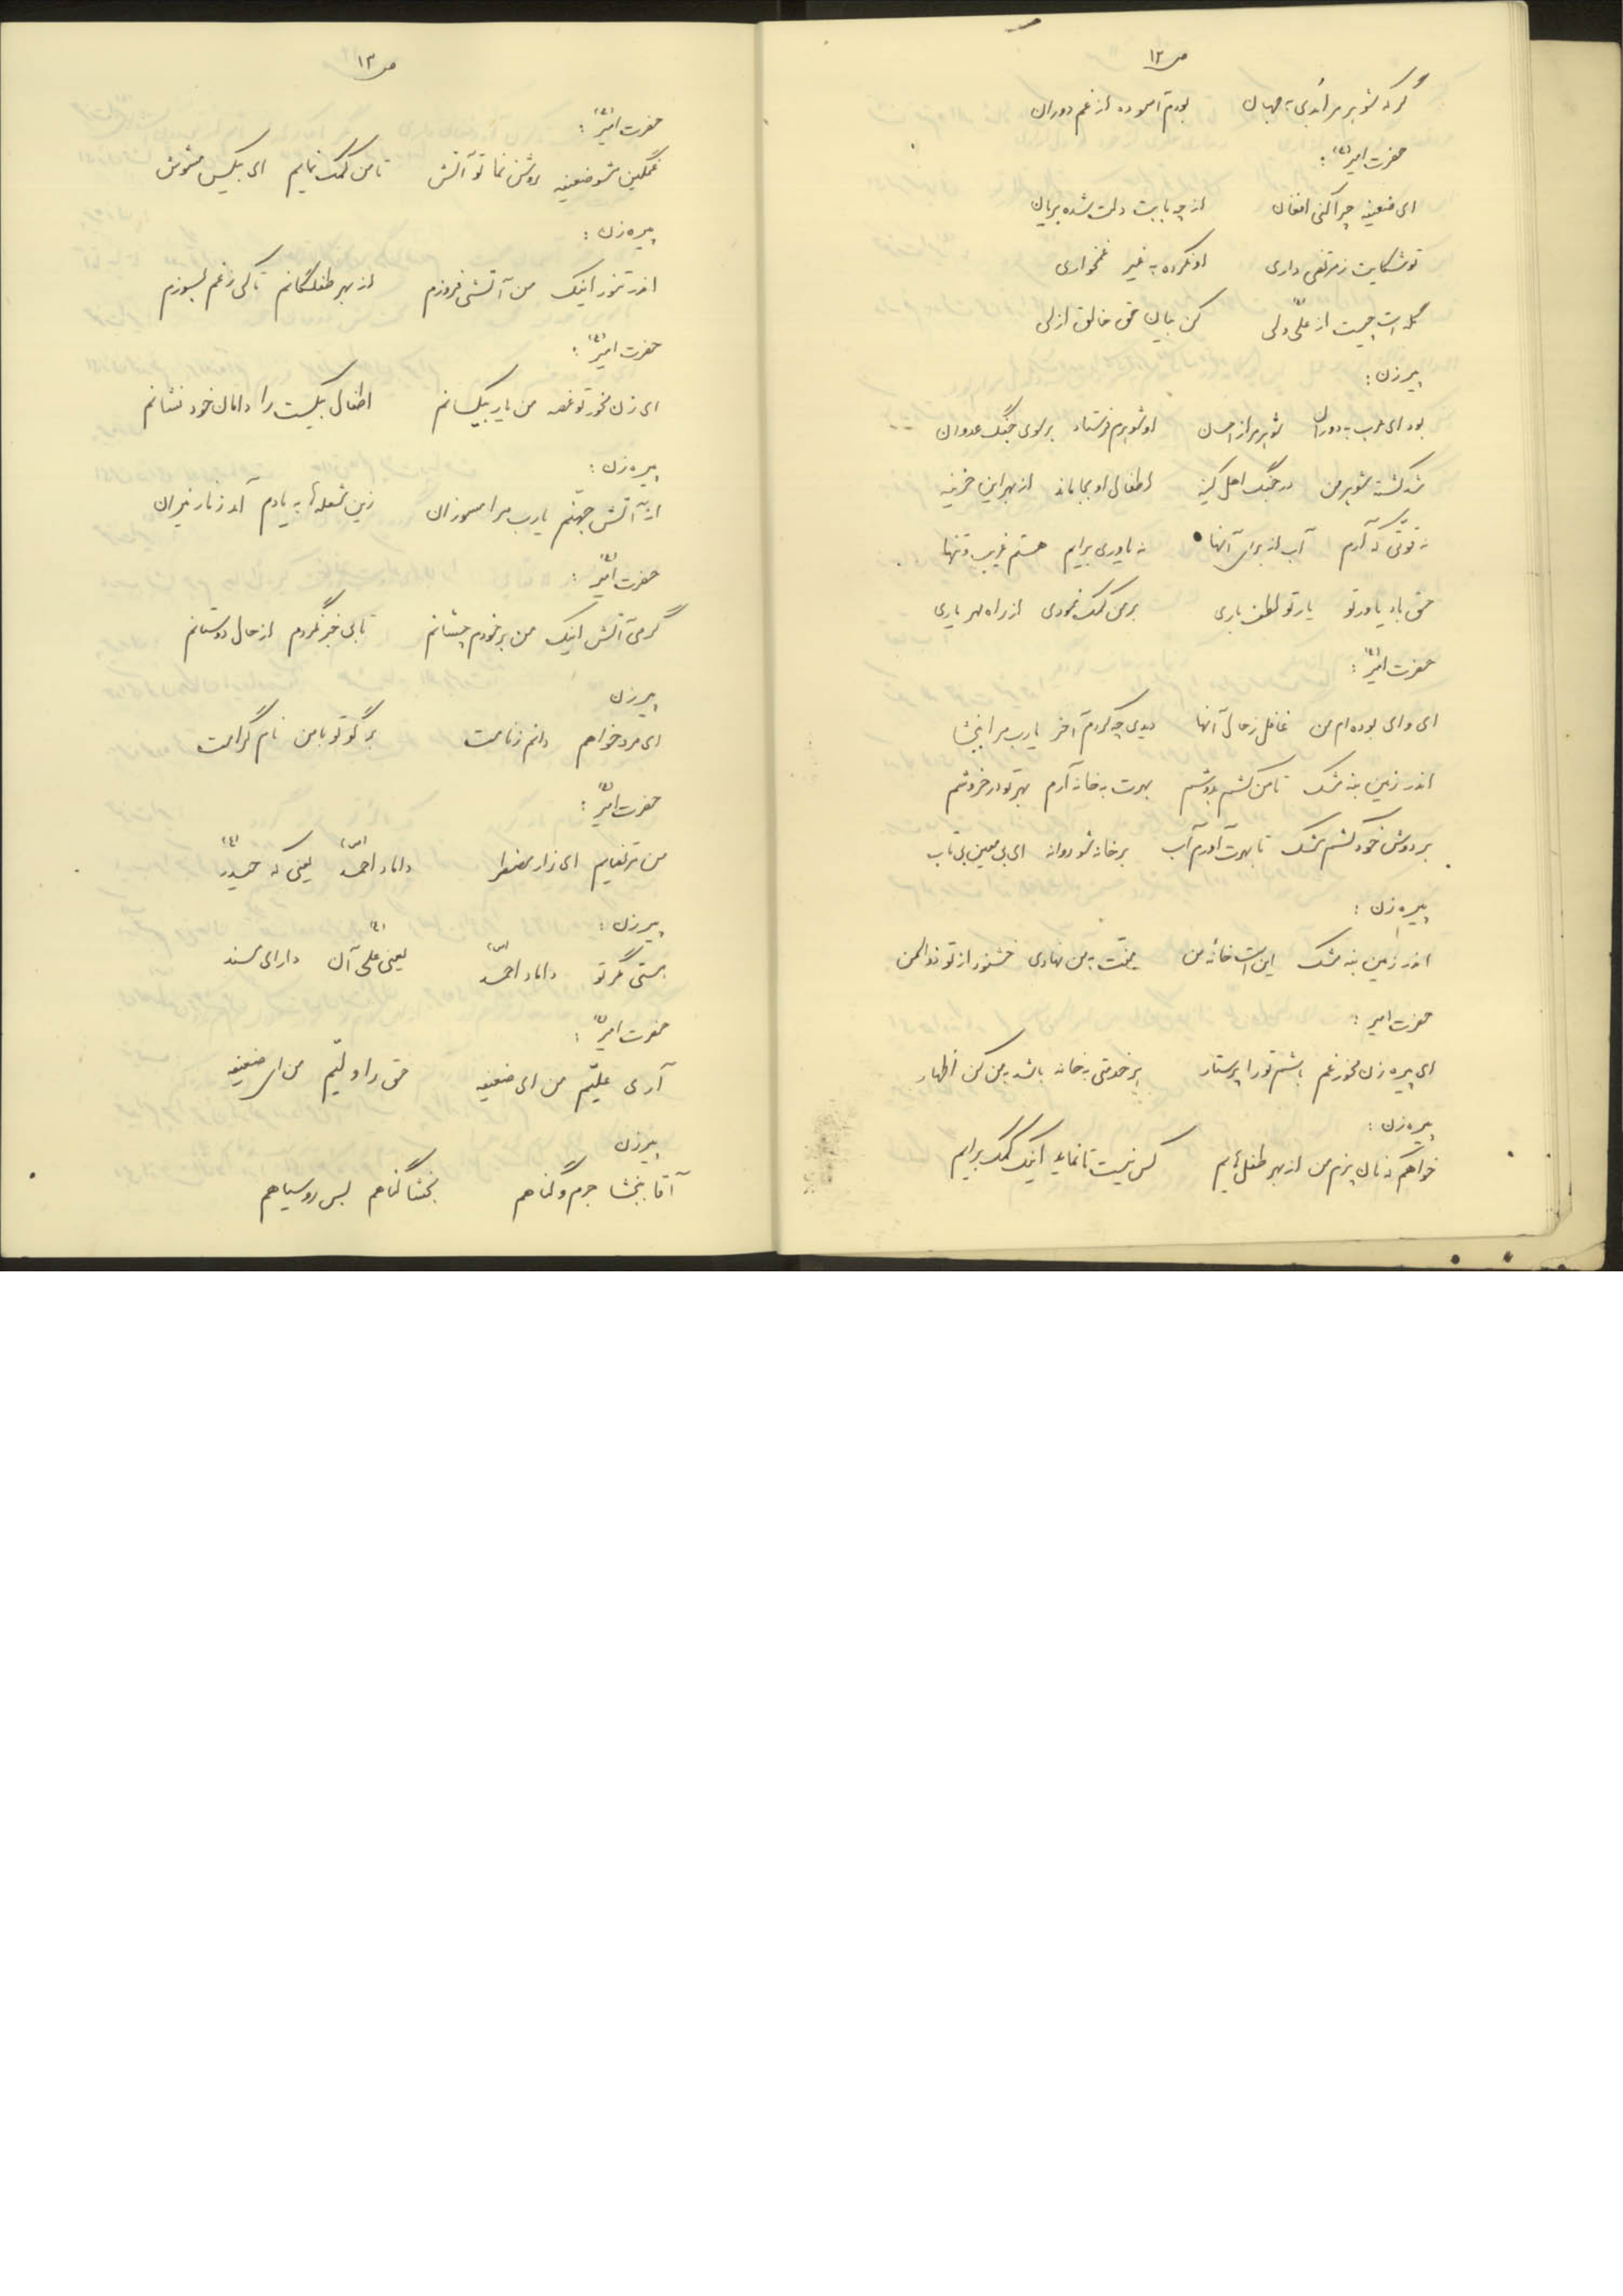 ص ۱۲
گر که شوهر مرا بُدی به جهان بودم آسوده از غم دوران
حضرت امیر (ع) :
ای ضعیفه چرا کنی افغان از چه بابت دلت شده بریان
تو شکایت ز مرتضی داری او نکرده به غیر غمخواری
گله ات چیست از علی (ع) ولی کن بیان حق خالق ازلی
پیرزن :
بود ای عرب به دوران شوهر مرا ز احسان او شوهرم فرستاد بر سوی جنگ عدوان
شد کشته شوهر من در جنگ اهل کینه اطفال او بجا ماند از بهر این حزینه
نه قوتی که آرم آب از برای آنها نه یاوری برایم هستم غریب و تنها
حق باد یاور تو یار تو لطف باری بر من کمک نمودی از راه مهر یاری
حضرت امیر (ع) :
ای وای بوده ام من غافل ز حال آنها دیدی چه کردم آخر یارب مرا ببخشا
اندر زمین بنه مشک تا من کشم بدوشم بهرت به خانه آرم بهر تو در خروشم
بر دوش خود کشم مشک تا بهرت آورم آب بر خانه شو روانه ای بی معین بی تاب
پیره زن :
اندر زمین بنه مشک این است خانه من منّت به من نهادی خشنود از تو ذوالمن
حضرت امیر :
ای پیره زن مخور غم باشم تو را پرستار هر خدمتی به خانه باشد به من کن اظهار
پیره زن :
خواهم که نان پزم من از بهر طفلهایم کس نیست تا نماید اینک کمک برایم
ص ۱۳
حضرت امیر (ع) :
غمگین مشو ضعیفه روشن نما تو آتش تا من کمک نمایم ای بیکس مشوش
پیره زن :
اندر تنور اینک من آتشی فروزم از بهر طفلگانم تا کی ز غم بسوزم
حضرت امیر (ع) :
ای زن مخور تو غصه من یار بیکسانم اطفال بیکست را دامان خود نشانم
پیره زن :
از آتش جهنّم یارب مرا مسوزان زین شعله ها به یادم آمد ز نار نیران
حضرت امیر (ع) :
گرمی آتش اینک من بر خودم چشانم تا بی خبر نگردم از حال دوستانم
پیرزن
ای مرد خواهم دانم ز نامت بر گو تو با من نام گرامت
حضرت امیر (ع) :
من مرتضایم ای زار مضطر داماد احمد (ص) یعنی که حیدر (ع)
پیرزن :
هستی مگر تو داماد احمد (ص) یعنی علی (ع) آن دارای مسند
حضرت امیر (ع) :
آری علیّم من ای ضعیفه حق را ولیّم من ای ضعیفه
پیرزن
آقا ببخشا جرم و گناهم بخشا گناهم بس رو سیاهم